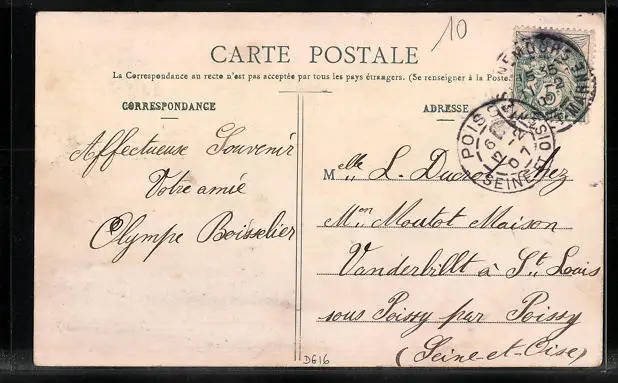 10
CARTE POSTALE
La Correspondance au recto n'est pas acceptée par tous les pays étrangers. (Se renseigner à la Poste
CORRESPONDANCE
ADRESSE
Affectueuse Souvenir
Votre amie
Olympe Boisselier
Melle L. Ducros chez
Mon Moutot Maison
Vanderbillt à St. Louis
sous Poissy par Poissy
(Seine-et-Oise)
NEMOURS
POIS
SEINE ET OIS
D616